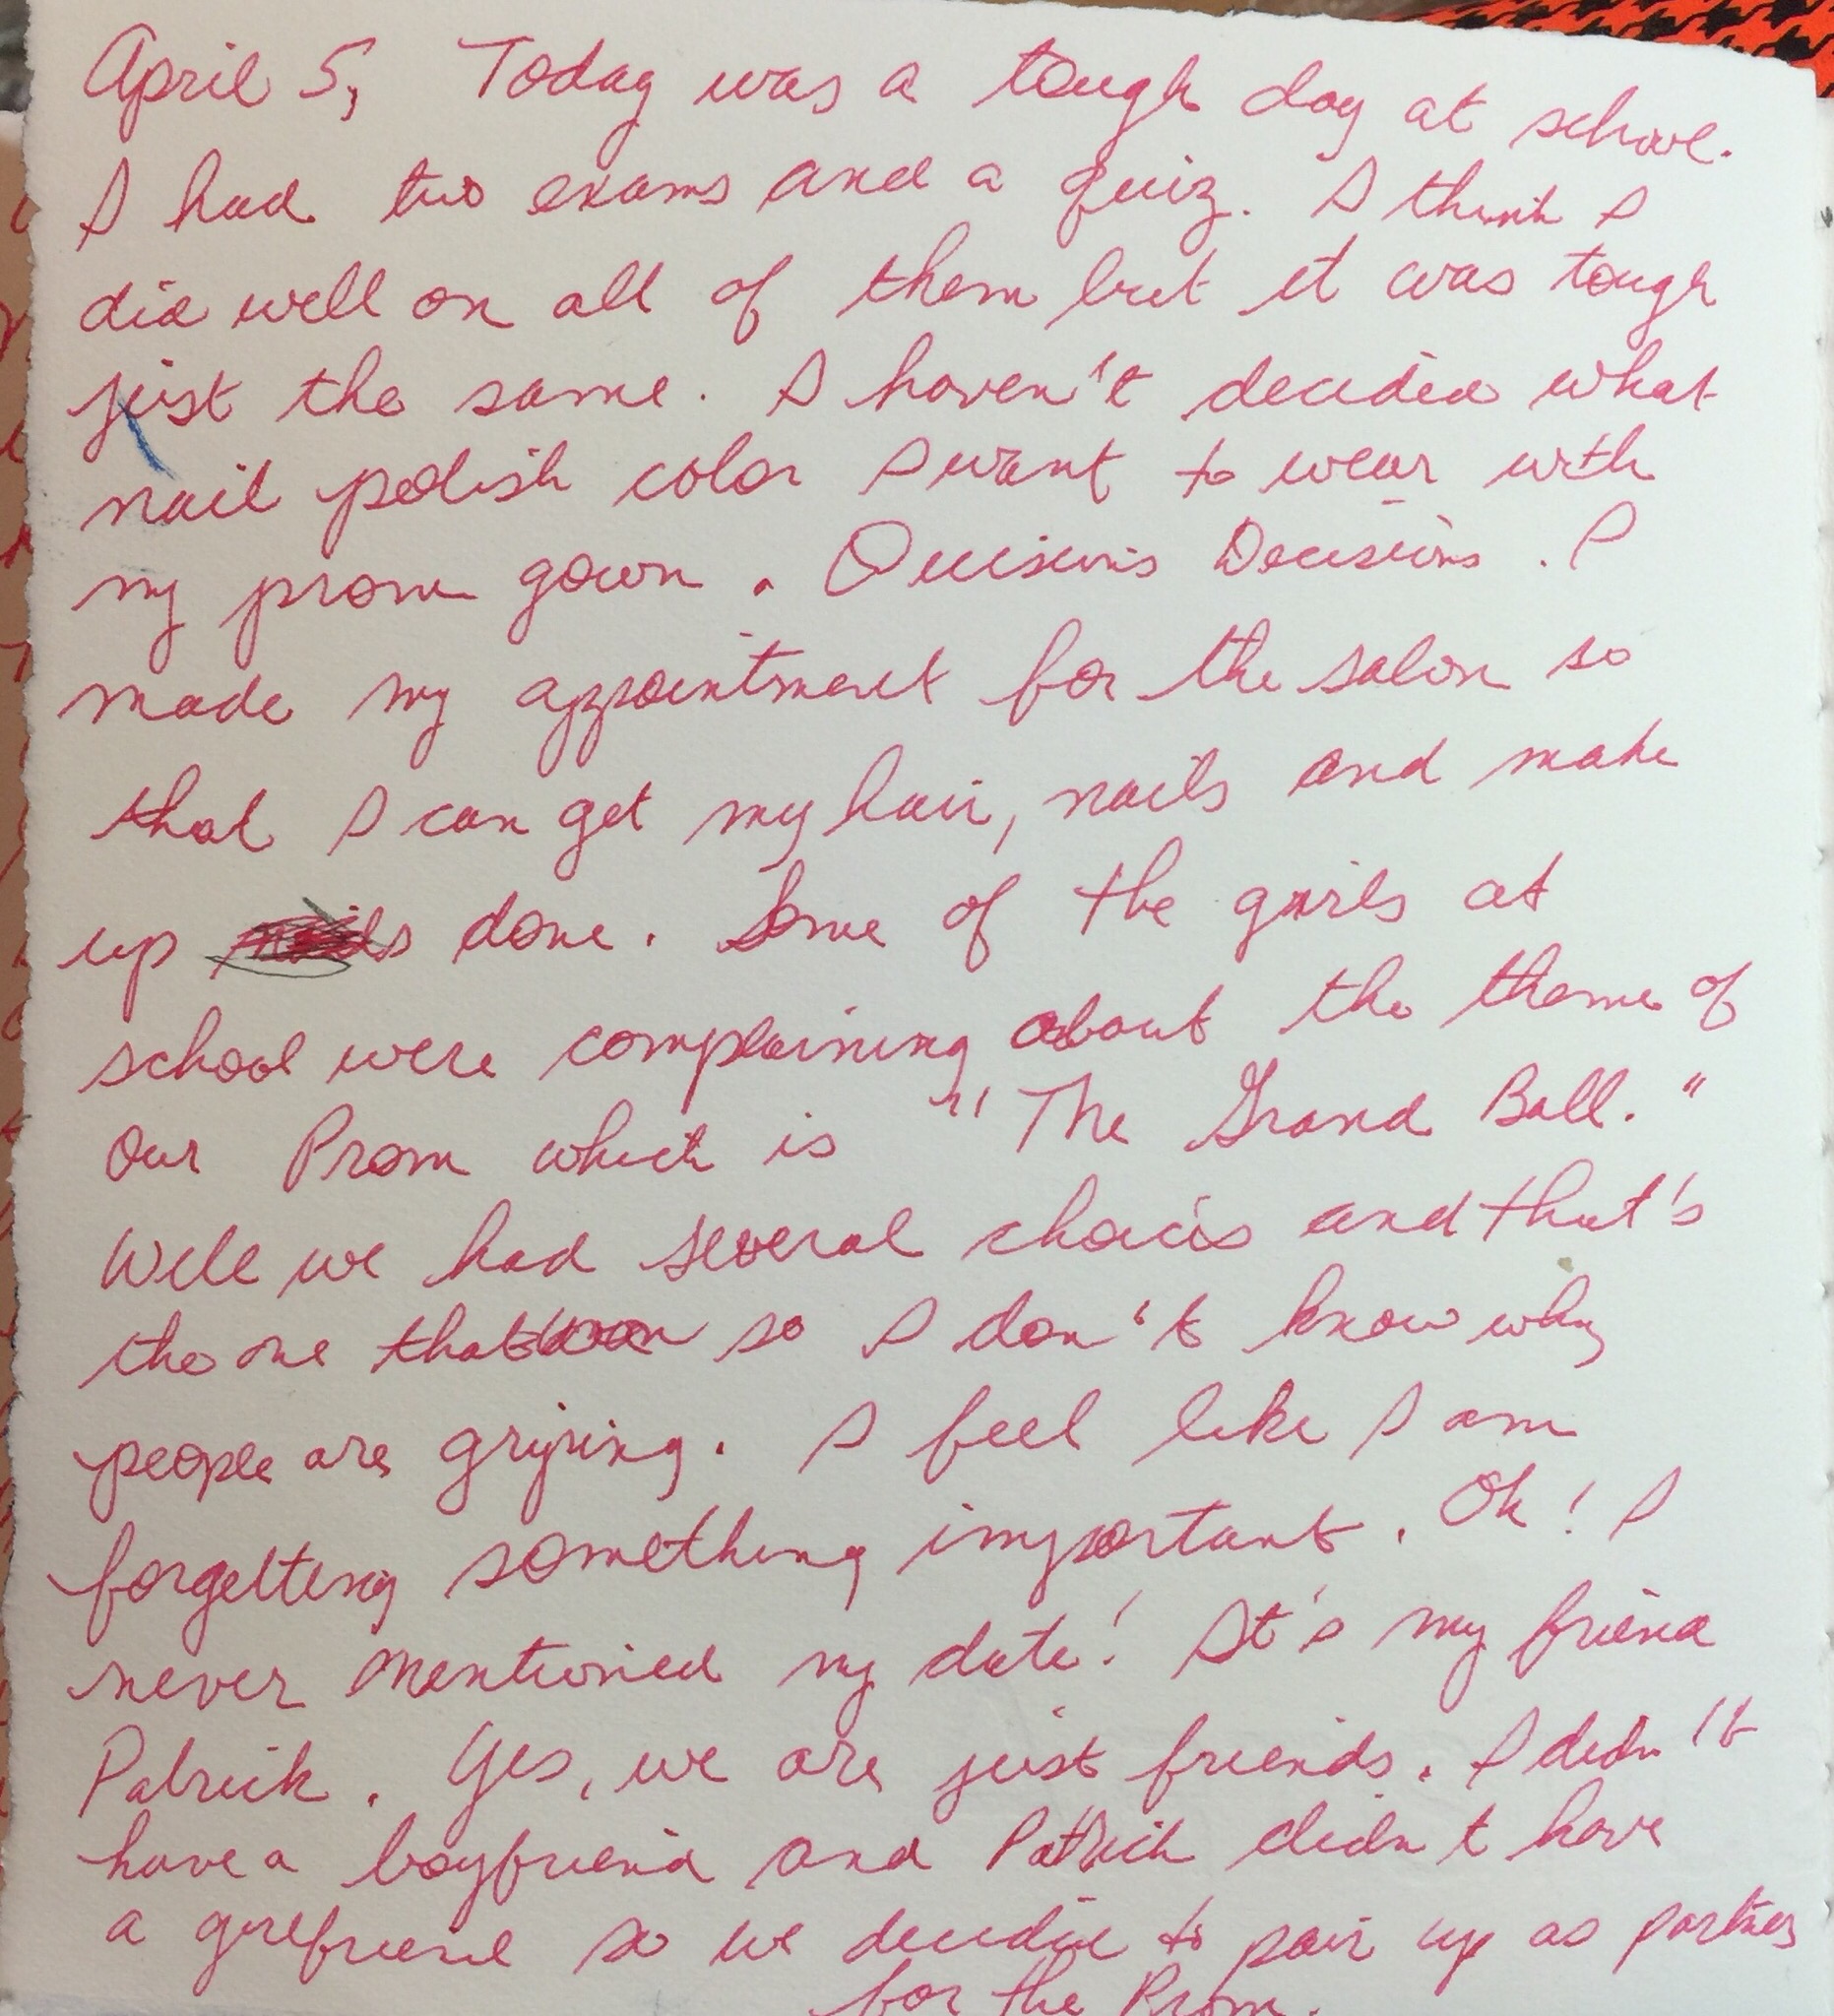 April 5, Today was a tough day at school.
I had two exams and a quiz. I think I
did well on all of them but it was tough
just the same. I haven't decided what
nail polish color I want to wear with
my prom gown. Decisions Decisions. I
made my appointment for the salon so
that I can get my hair, nails and make
up done. Some of the girls at
school were complaining about the theme of
our Prom which is "The Grand Ball."
Well we had several choices and that's
the one that won so I don't know why
people are griping. I feel like I am
forgetting something important. Oh! I
never mentioned my date! It's my friend
Patrick. Yes, we are just friends. I didn't
have a boyfriend and Patrick didn't have
a girlfriend so we decided to pair up as partners
for the Prom.